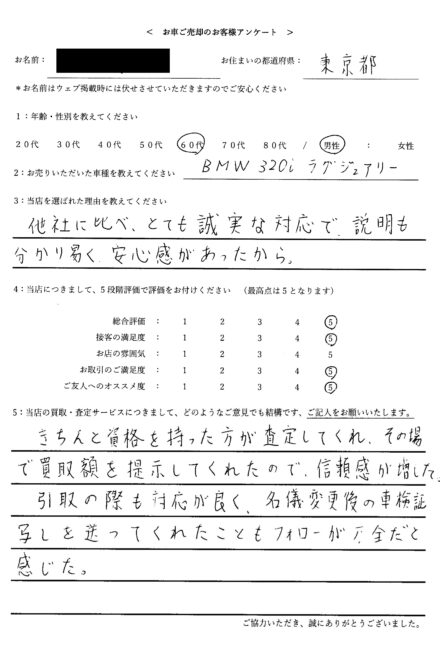 < お車ご売却のお客様アンケート >
お名前： お住まいの都道府県： 東京都
＊お名前はウェブ掲載時には伏せさせていただきますのでご安心ください
1：年齢・性別を教えてください
20代 30代 40代 50代 60代 70代 80代 / 男性 ： 女性
2：お売りいただいた車種を教えてください BMW 320i ラグジュアリー
3：当店を選ばれた理由を教えてください
他社に比べ、とても誠実な対応で、説明も
分かり易く、安心感があったから。
4：当店につきまして、5段階評価で評価をお付けください （最高点は5となります）
総合評価 ： 1 2 3 4 5
接客の満足度 ： 1 2 3 4 5
お店の雰囲気 ： 1 2 3 4 5
お取引のご満足度 ： 1 2 3 4 5
ご友人へのオススメ度 ： 1 2 3 4 5
5：当店の買取・査定サービスにつきまして、どのようなご意見でも結構です、ご記入をお願いいたします。
きちんと資格を持った方が査定してくれ、その場
で買取額を提示してくれたので、信頼感が増した。
引取の際も対応が良く、名儀変更後の車検証
写しを送ってくれたこともフォローが万全だと
感じた。
ご協力いただき、誠にありがとうございました。